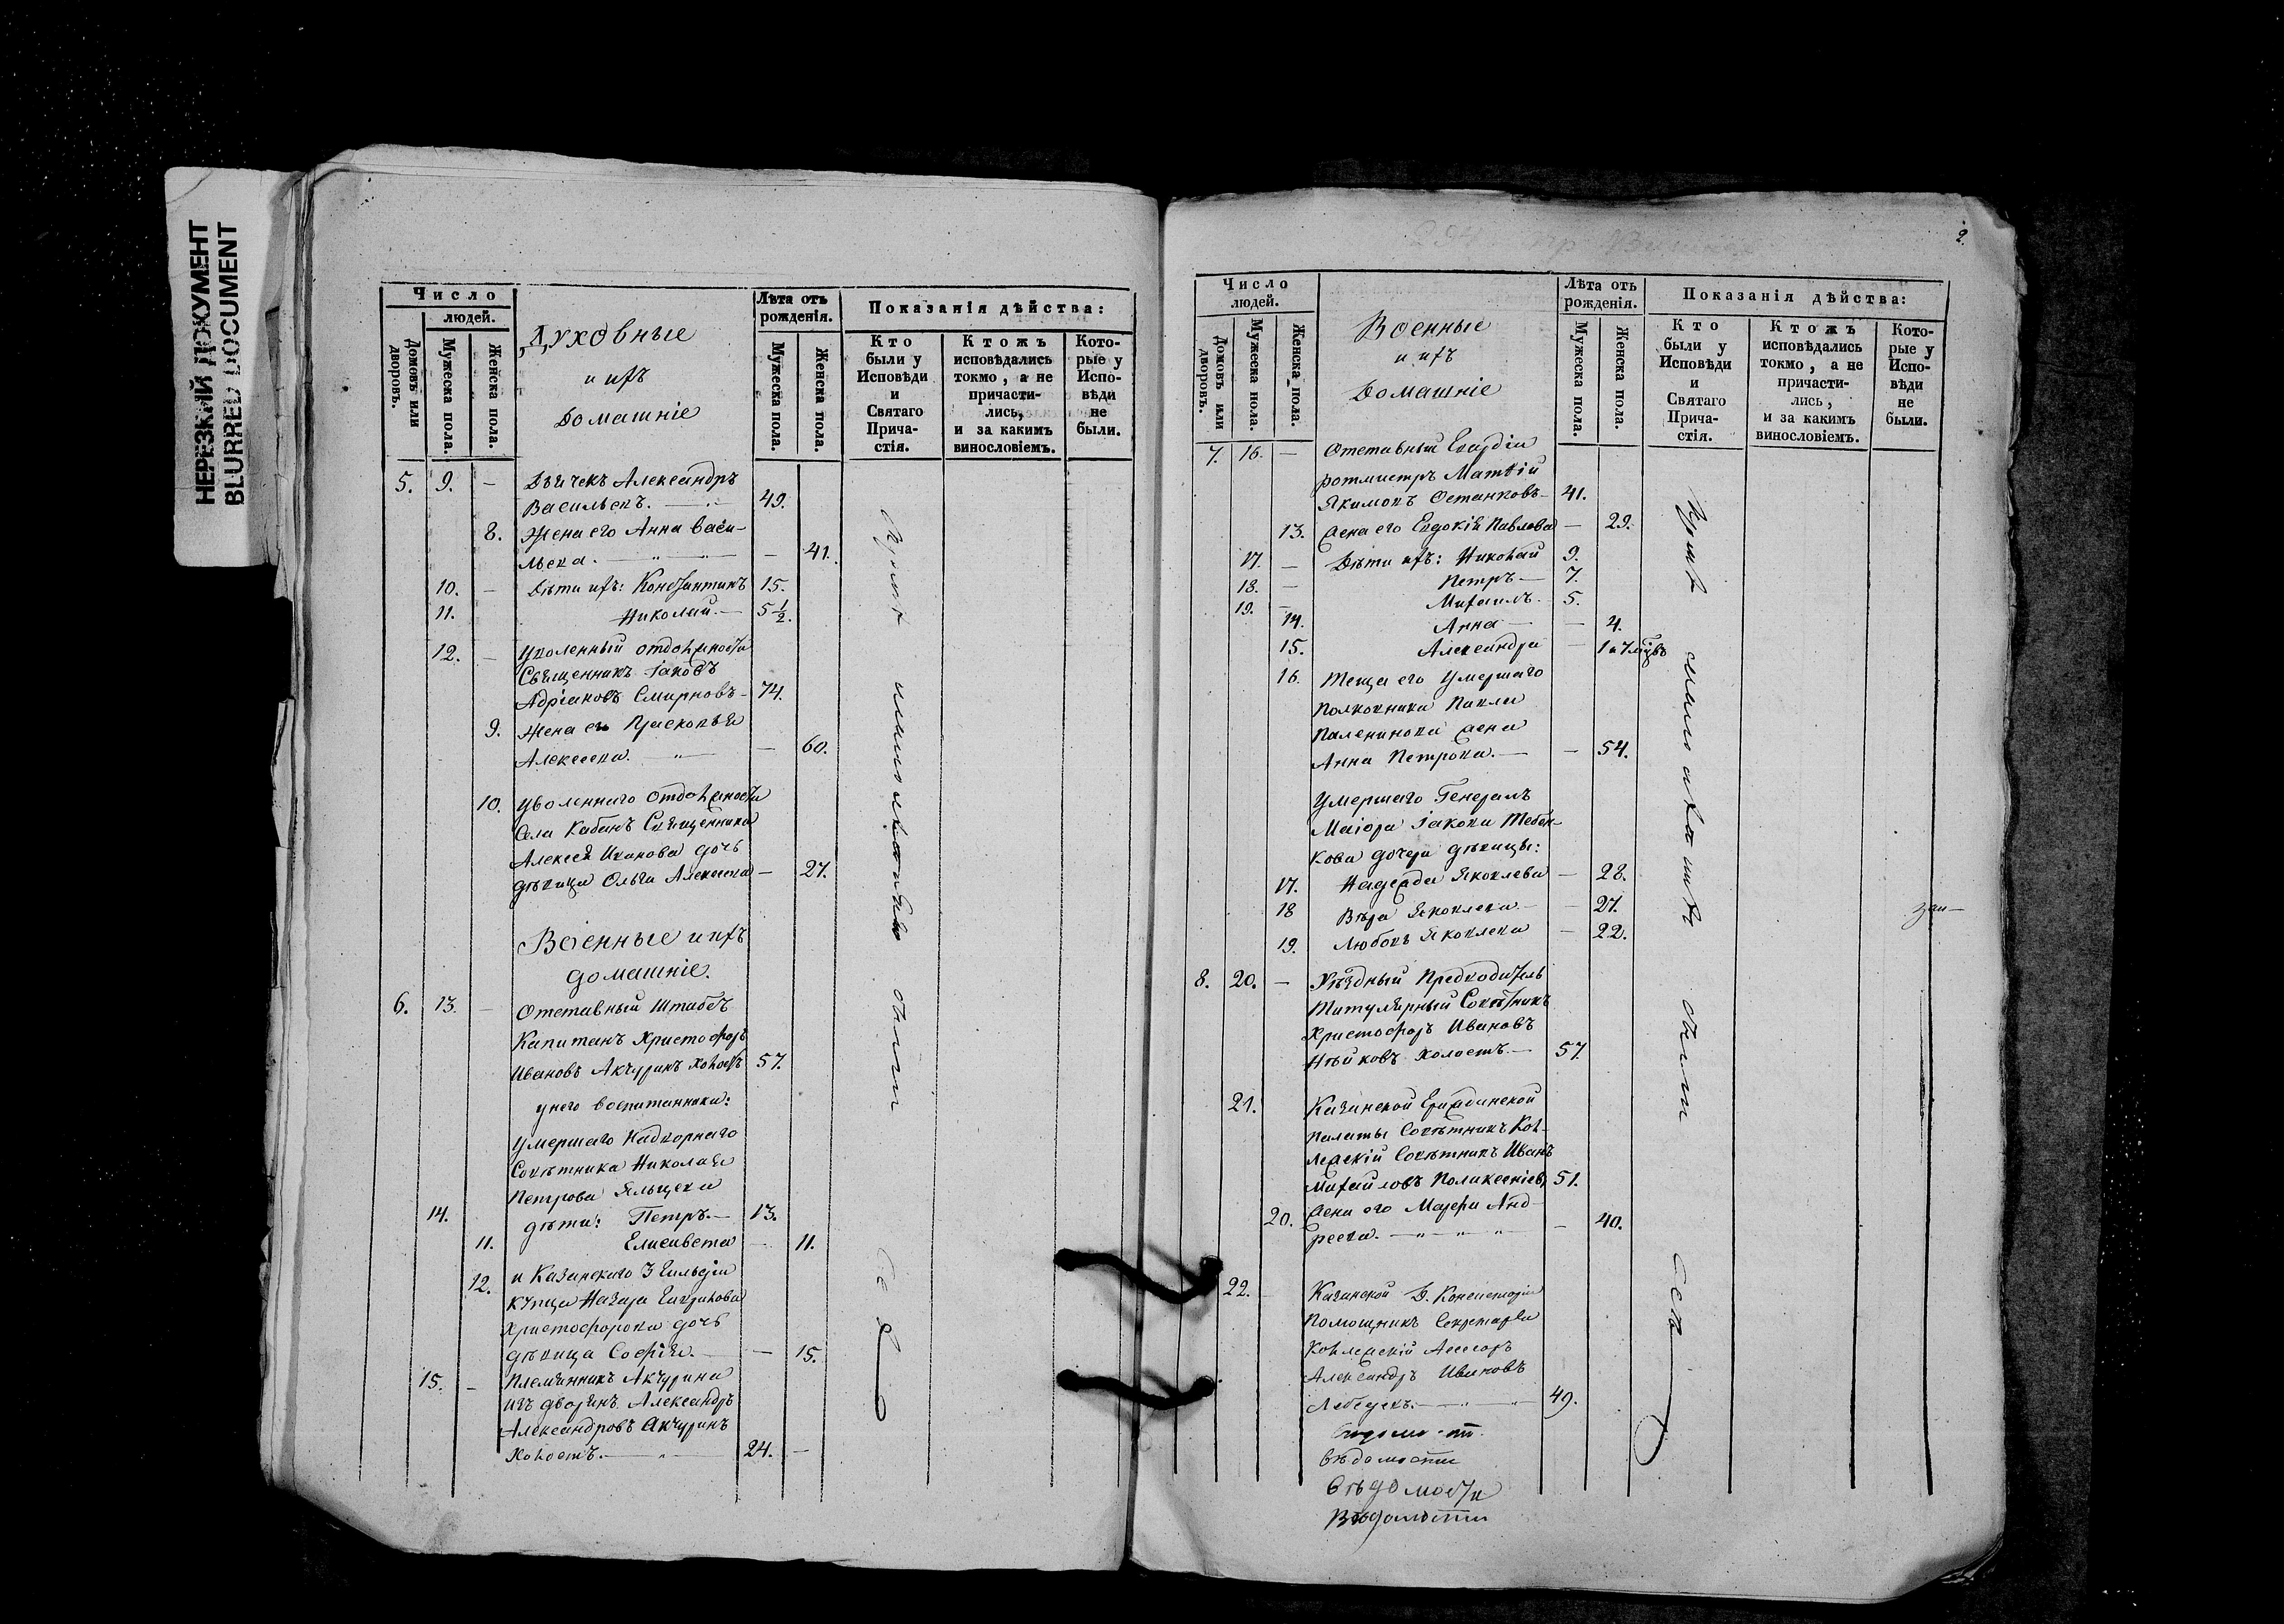 НЕРЕЗКИЙ ДОКУМЕНТ
BLURRED DOCUMENT
Число
людей.
Домовъ или дворовъ.
Мужеска пола.
Женска пола.
Духовные
и ихъ
домашніе
Лѣта отъ
рожденія.
Мужеска пола.
Женска пола.
Показанія дѣйства:
Кто
были у
Исповѣди
и
Святаго
Прича-
стія.
Ктожъ
исповѣдались
токмо, а не
причасти-
лись,
и за какимъ
винословіемъ.
Кото-
рые у
Испо-
вѣди
не
были.
5. 9. — Дьячекъ Александръ
Васильевъ. — 49.
8. Жена его Анна Васи-
льева. — — 41.
10. — Дѣти ихъ: Константинъ 15.
11. Николай. — 5 1/2.
12. — Уволенный отдолжности
Священникъ Іаковъ
Адріановъ Смирновъ — 74.
9. Жена его Прасковья
Алексеева. — — 60.
10. Уволеннаго отдолжности
Села Кабанъ Священника
Алексея Иванова дочь
дѣвица Ольга Алексеева — 27.
Военные и ихъ
домашніе.
6. 13. — Отставный Штабсъ
Капитанъ Христофоръ
Ивановъ Акчуринъ холостъ 57.
у него воспитанники:
Умершаго Надворнаго
Совѣтника Николая
Петрова
14. дѣти: Петръ. — 13.
11. Елисавета — 11.
12. и Казанскаго 3 Гильдіи
купца Назара
Христофорова дочь
дѣвица Софія. — — 15.
15. — Племянникъ Акчурина
изъ дворянъ Александръ
Александровъ Акчуринъ
Холостъ. — 24. —
2.
Число
людей.
Домовъ или дворовъ.
Мужеска пола.
Женска пола.
Военные
и ихъ
домашніе
Лѣта отъ
рожденія.
Мужеска пола.
Женска пола.
Показанія дѣйства:
Кто
были у
Исповѣди
и
Святаго
Прича-
стія.
Ктожъ
исповѣдались
токмо, а не
причасти-
лись,
и за какимъ
винословіемъ.
Кото-
рые у
Испо-
вѣди
не
были.
7. 16. — Отставный Гвардіи
ротмистръ Матвій
Якимовъ Останковъ — 41.
13. жена его Евдокія Павлова — 29.
17. — Дѣти ихъ: Николай 9.
18. — Петръ — 7.
19. — Михаилъ. 5.
14. Анна — — 4.
15. Александра — 1 и 7 мѣцвъ
16. Теща его умершаго
Полковника Павла
жена
Анна Петрова. — — 54.
Умершаго Генералъ
Маіора Іакова Тебен-
кова дочери дѣвицы:
17. Надежда Яковлева — 28.
18 Вѣра Яковлева. — 27.
19. Любовь Яковлева — 22.
8. 20. — Уѣздный Предводитель
Титулярный Совѣтникъ
Христофоръ Ивановъ
холостъ. — 57.
21. Казанской Гражданской
палаты Совѣтникъ Кол-
лежскій Совѣтникъ Иванъ
Михайловъ 51.
20. жена его Анд-
реева. — — 40.
22. Казанской Д. Консисторіи
Помощникъ Секретаря
Коллежскій Асесоръ
Александръ Ивановъ
Лебедевъ. — 49.
вѣдомости
вѣдомости
Вѣдомости